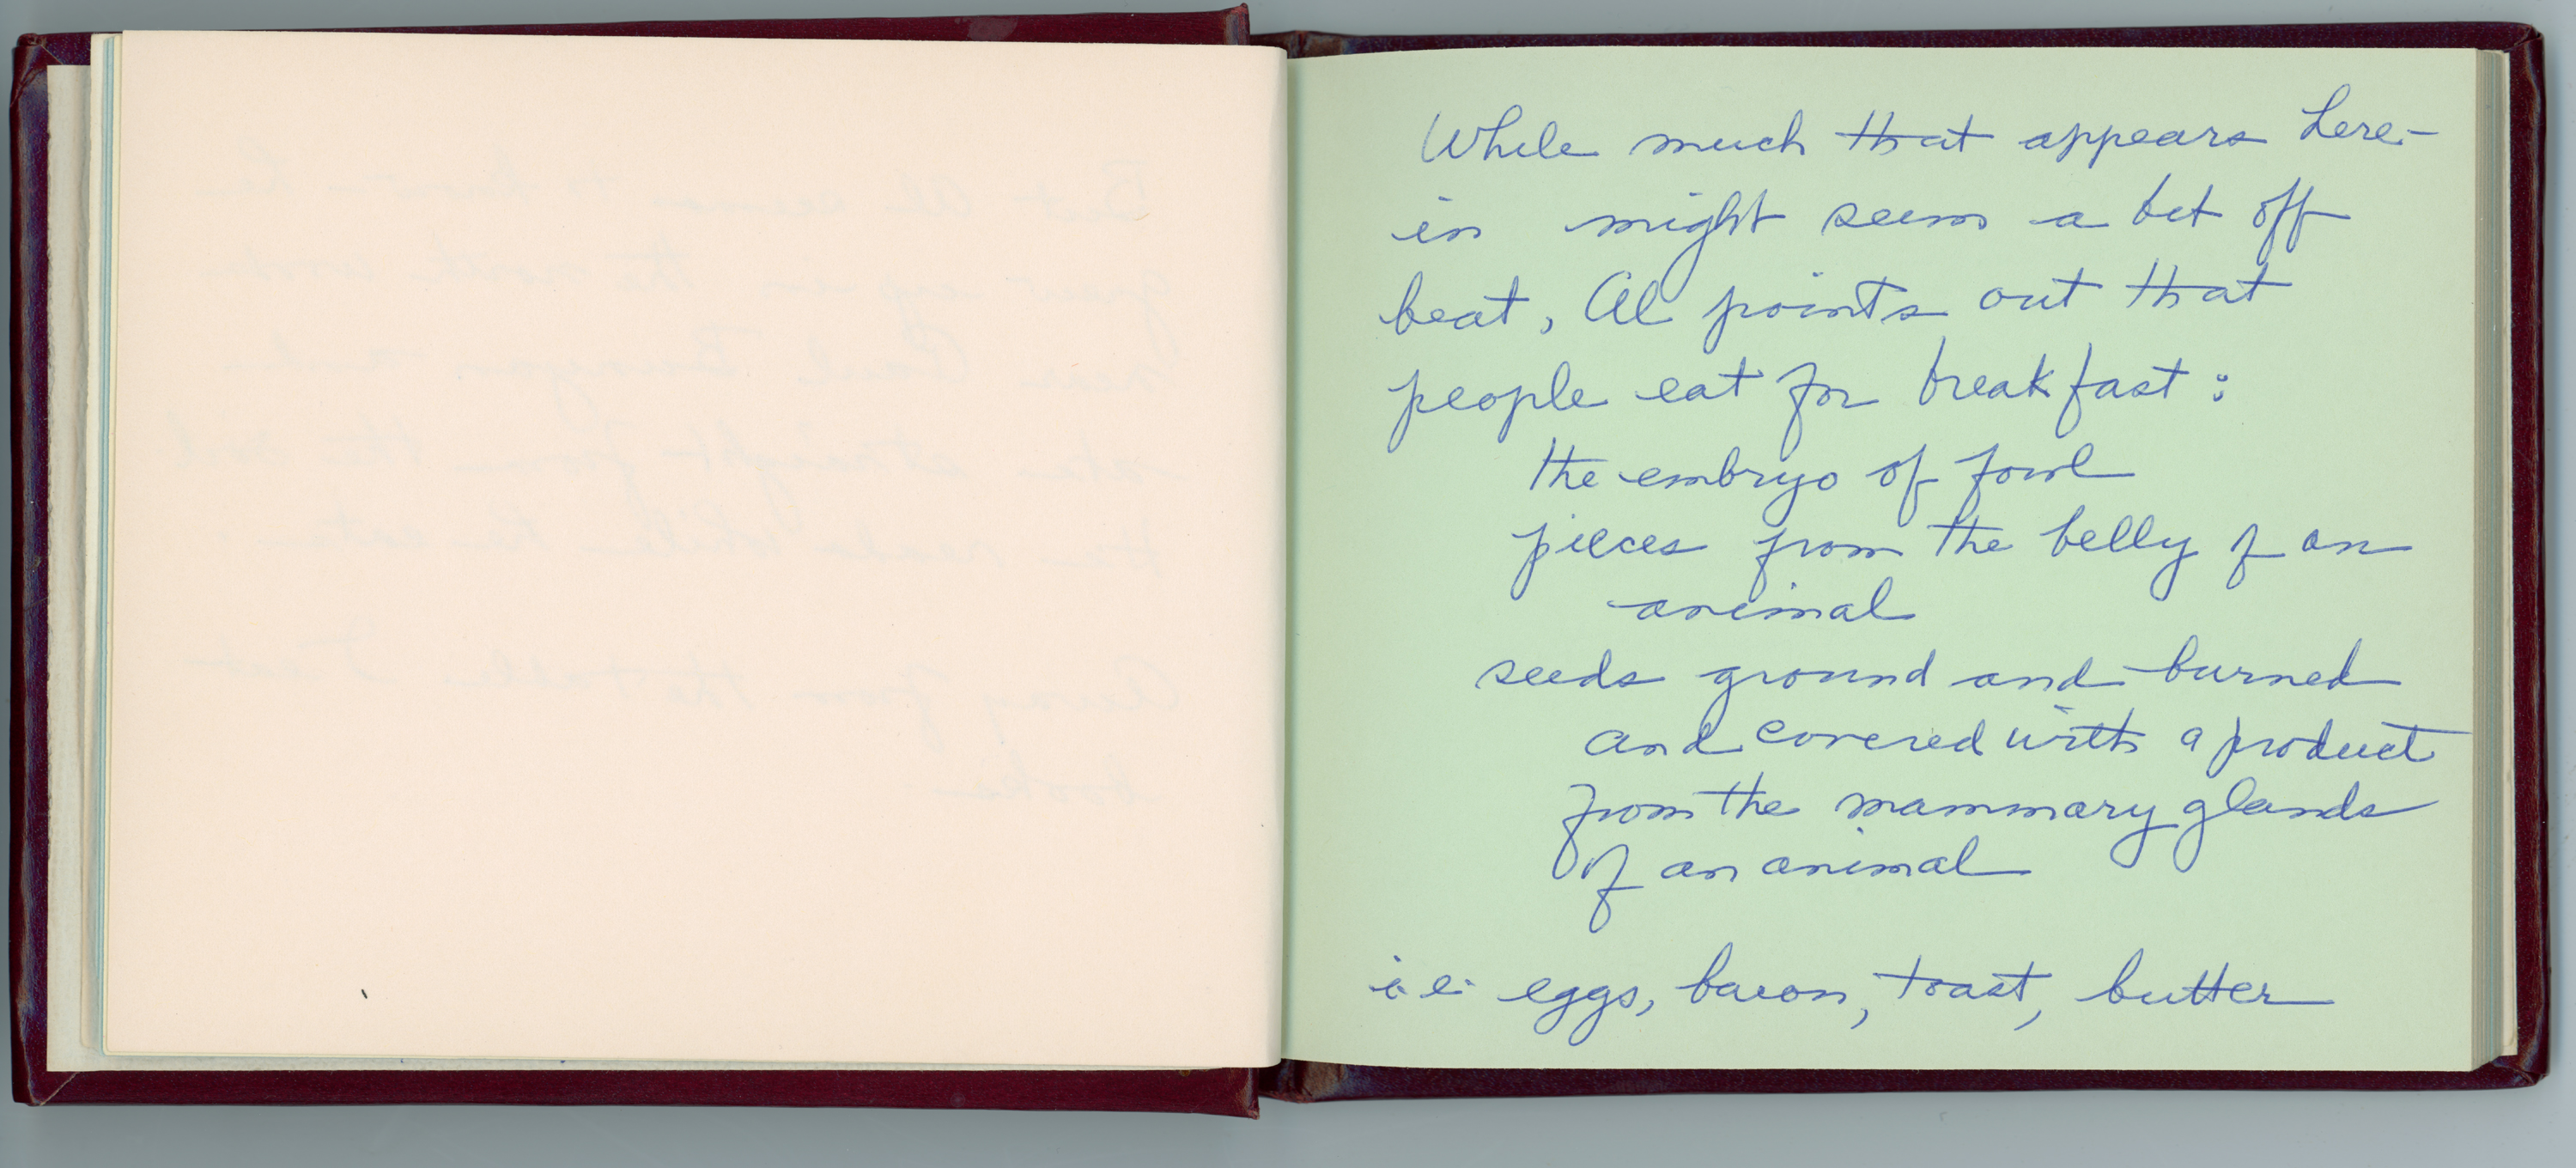 While much that appears here-
in might seem a bit off
beat, Al points out that
people eat for breakfast:
the embryo of fowl
pieces from the belly of an
animal
seeds ground and burned
and covered with a product
from the mammary glands
of an animal
i.e. eggs, bacon, toast, butter